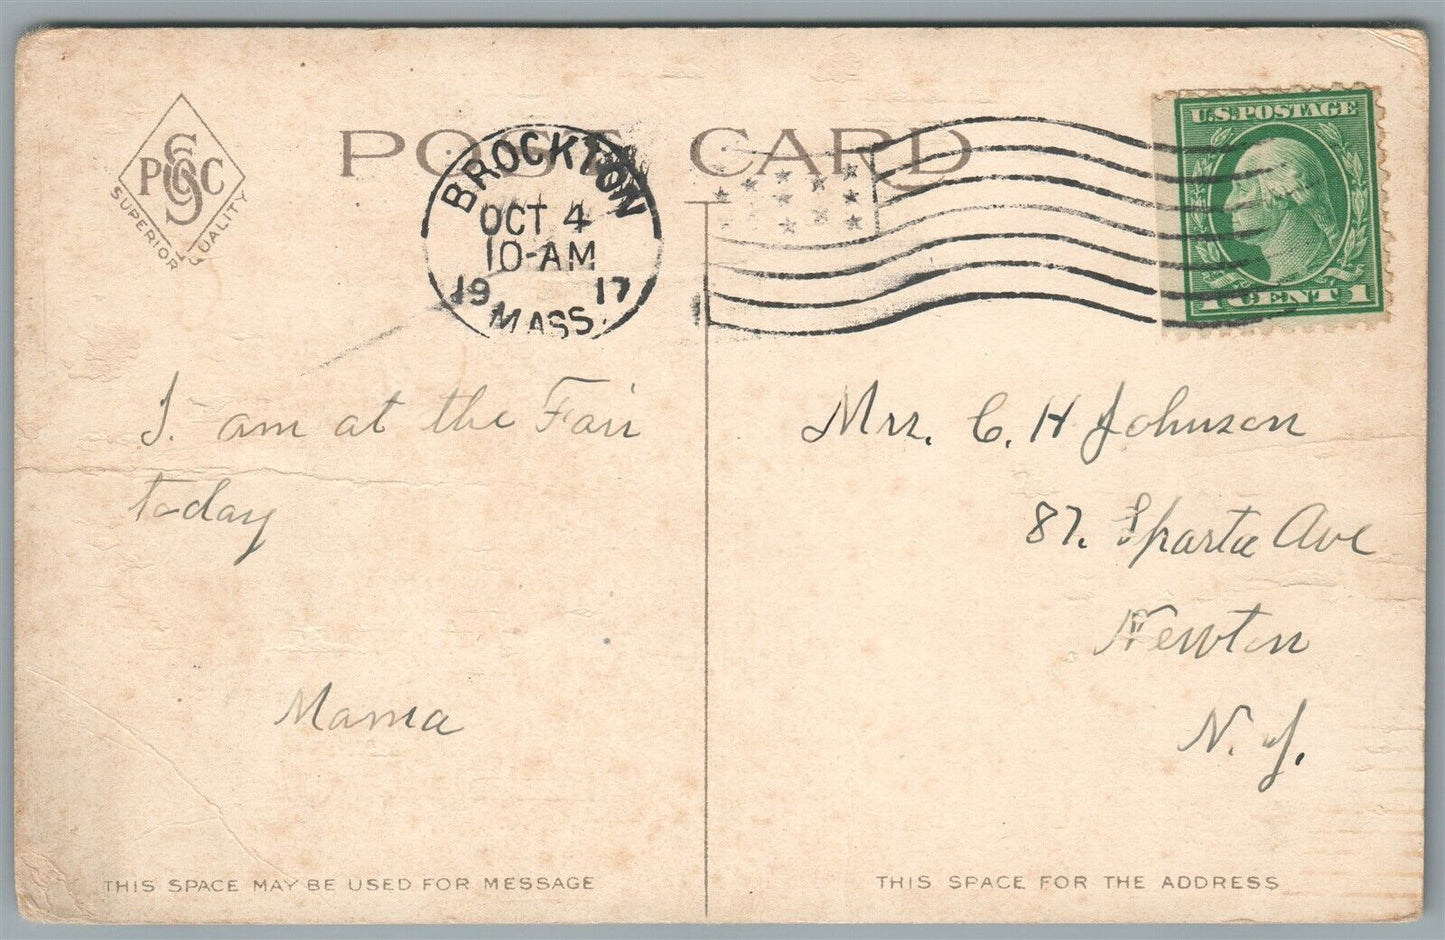 POST CARD
PGSC
SUPERIOR QUALITY
BROCKTON
OCT 4
10-AM
19 17
MASS.
U.S. POSTAGE
1 CENT 1
I. am at the Fair
today
Mama
Mrs. C. H Johnson
87. Sparta Ave
Newton
N. J.
THIS SPACE MAY BE USED FOR MESSAGE
THIS SPACE FOR THE ADDRESS